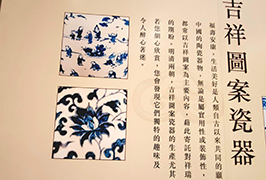 吉祥圖案瓷器
福壽安康，生活美好是人類自古以來共同的願
中國的陶瓷器物，無論是屬實用性或裝飾性，
都常以吉祥圖案為主要內容，藉此寄託對祥瑞
的期盼。明清兩朝，吉祥圖案瓷器的生產尤其
若您細心欣賞，您會發現它們獨特的趣味及
令人醉心著迷。